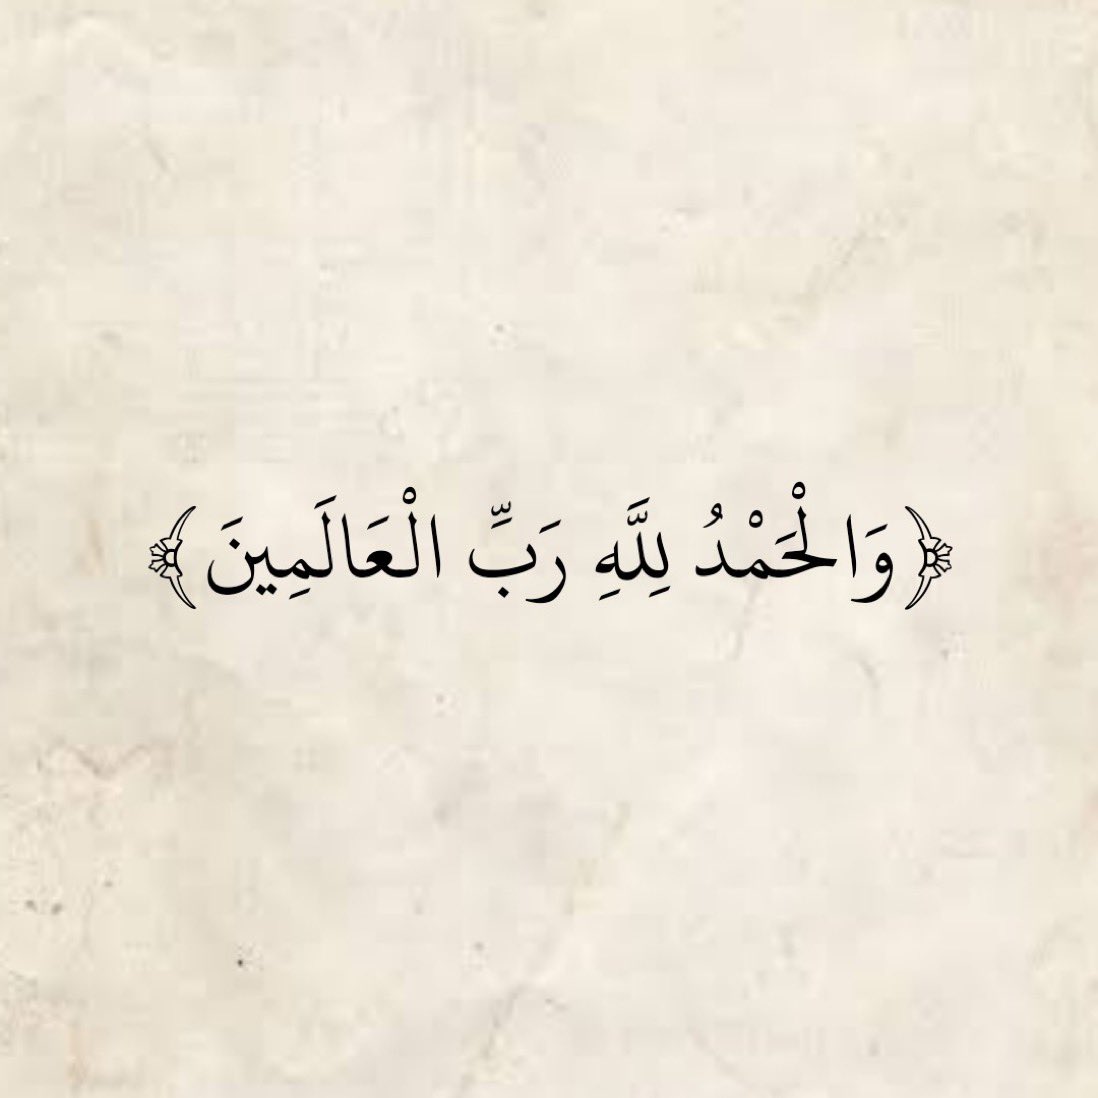 ﴿ وَالْحَمْدُ لِلَّهِ رَبِّ الْعَالَمِينَ ﴾